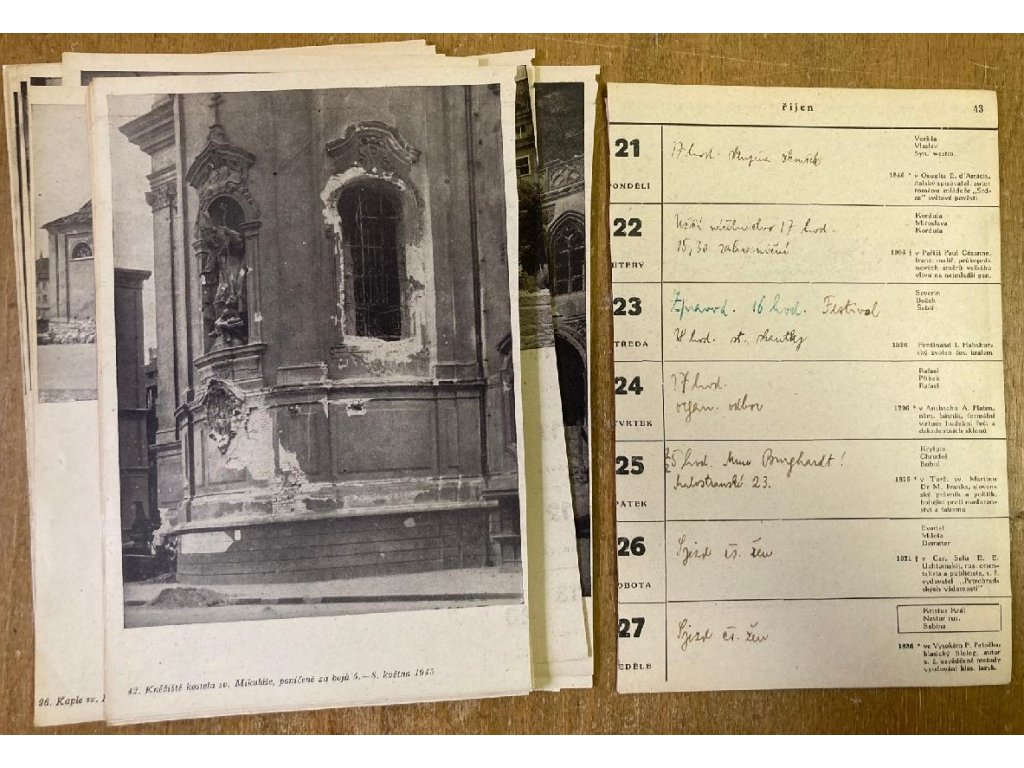 42. Kněžiště kostela sv. Mikuláše, poničené za bojů 5.—8. května 1945
26. Kaple sv.
říjen 43
21
PONDĚLÍ
17 hod.
Voršila
Vlaslav
Syn. westm.
1846 * v Oneglia E. d'Amicis,
italský spisovatel, autor
románu mládeže „Srd-
ce" světové pověsti
22
ÚTERÝ
17 hod.
15,30 zahraniční
Kordula
Miroslava
Kordula
1906 † v Paříži Paul Cézanne,
franc. malíř, průkopník
nových směrů velkého
vlivu na nejmladší gen.
23
STŘEDA
Zpravod. 16 hod. Festival
18 hod. st.
Severin
Boček
Šebíř
1526 Ferdinand I. Habsbur-
ský zvolen čes. králem
24
ČTVRTEK
17 hod.
organ. odbor
Rafael
Přibek
Rafael
1796 * v Ansbachu A. Platen,
něm. básník, formální
virtuos hudební řeči a
dekadentních sklonů
25
PÁTEK
5 hod. Mme Burghardt!
Malostranské 23.
Kryšpín
Chrudoš
Bohuš
1875 * v Turč. sv. Martinu
Dr M. Ivanka, sloven-
ský právník a politik,
bojující proti maďaron-
ství a fašismu
26
SOBOTA
Sjezd čs. žen
Evarist
Milota
Demeter
1921 † v Car. Selu E. E.
Uchtomskij, rus. orien-
talista a publicista, s. č.
vydavatel „Petrohrad-
ských vědomostí"
27
NEDĚLE
Sjezd čs. žen
Kristus Král
Nestor rus.
Sabina
1836 * ve Vysokém F. Patočka,
klasický filolog, autor
s. č. osvědčené metody
vyučování klas. jazyk.